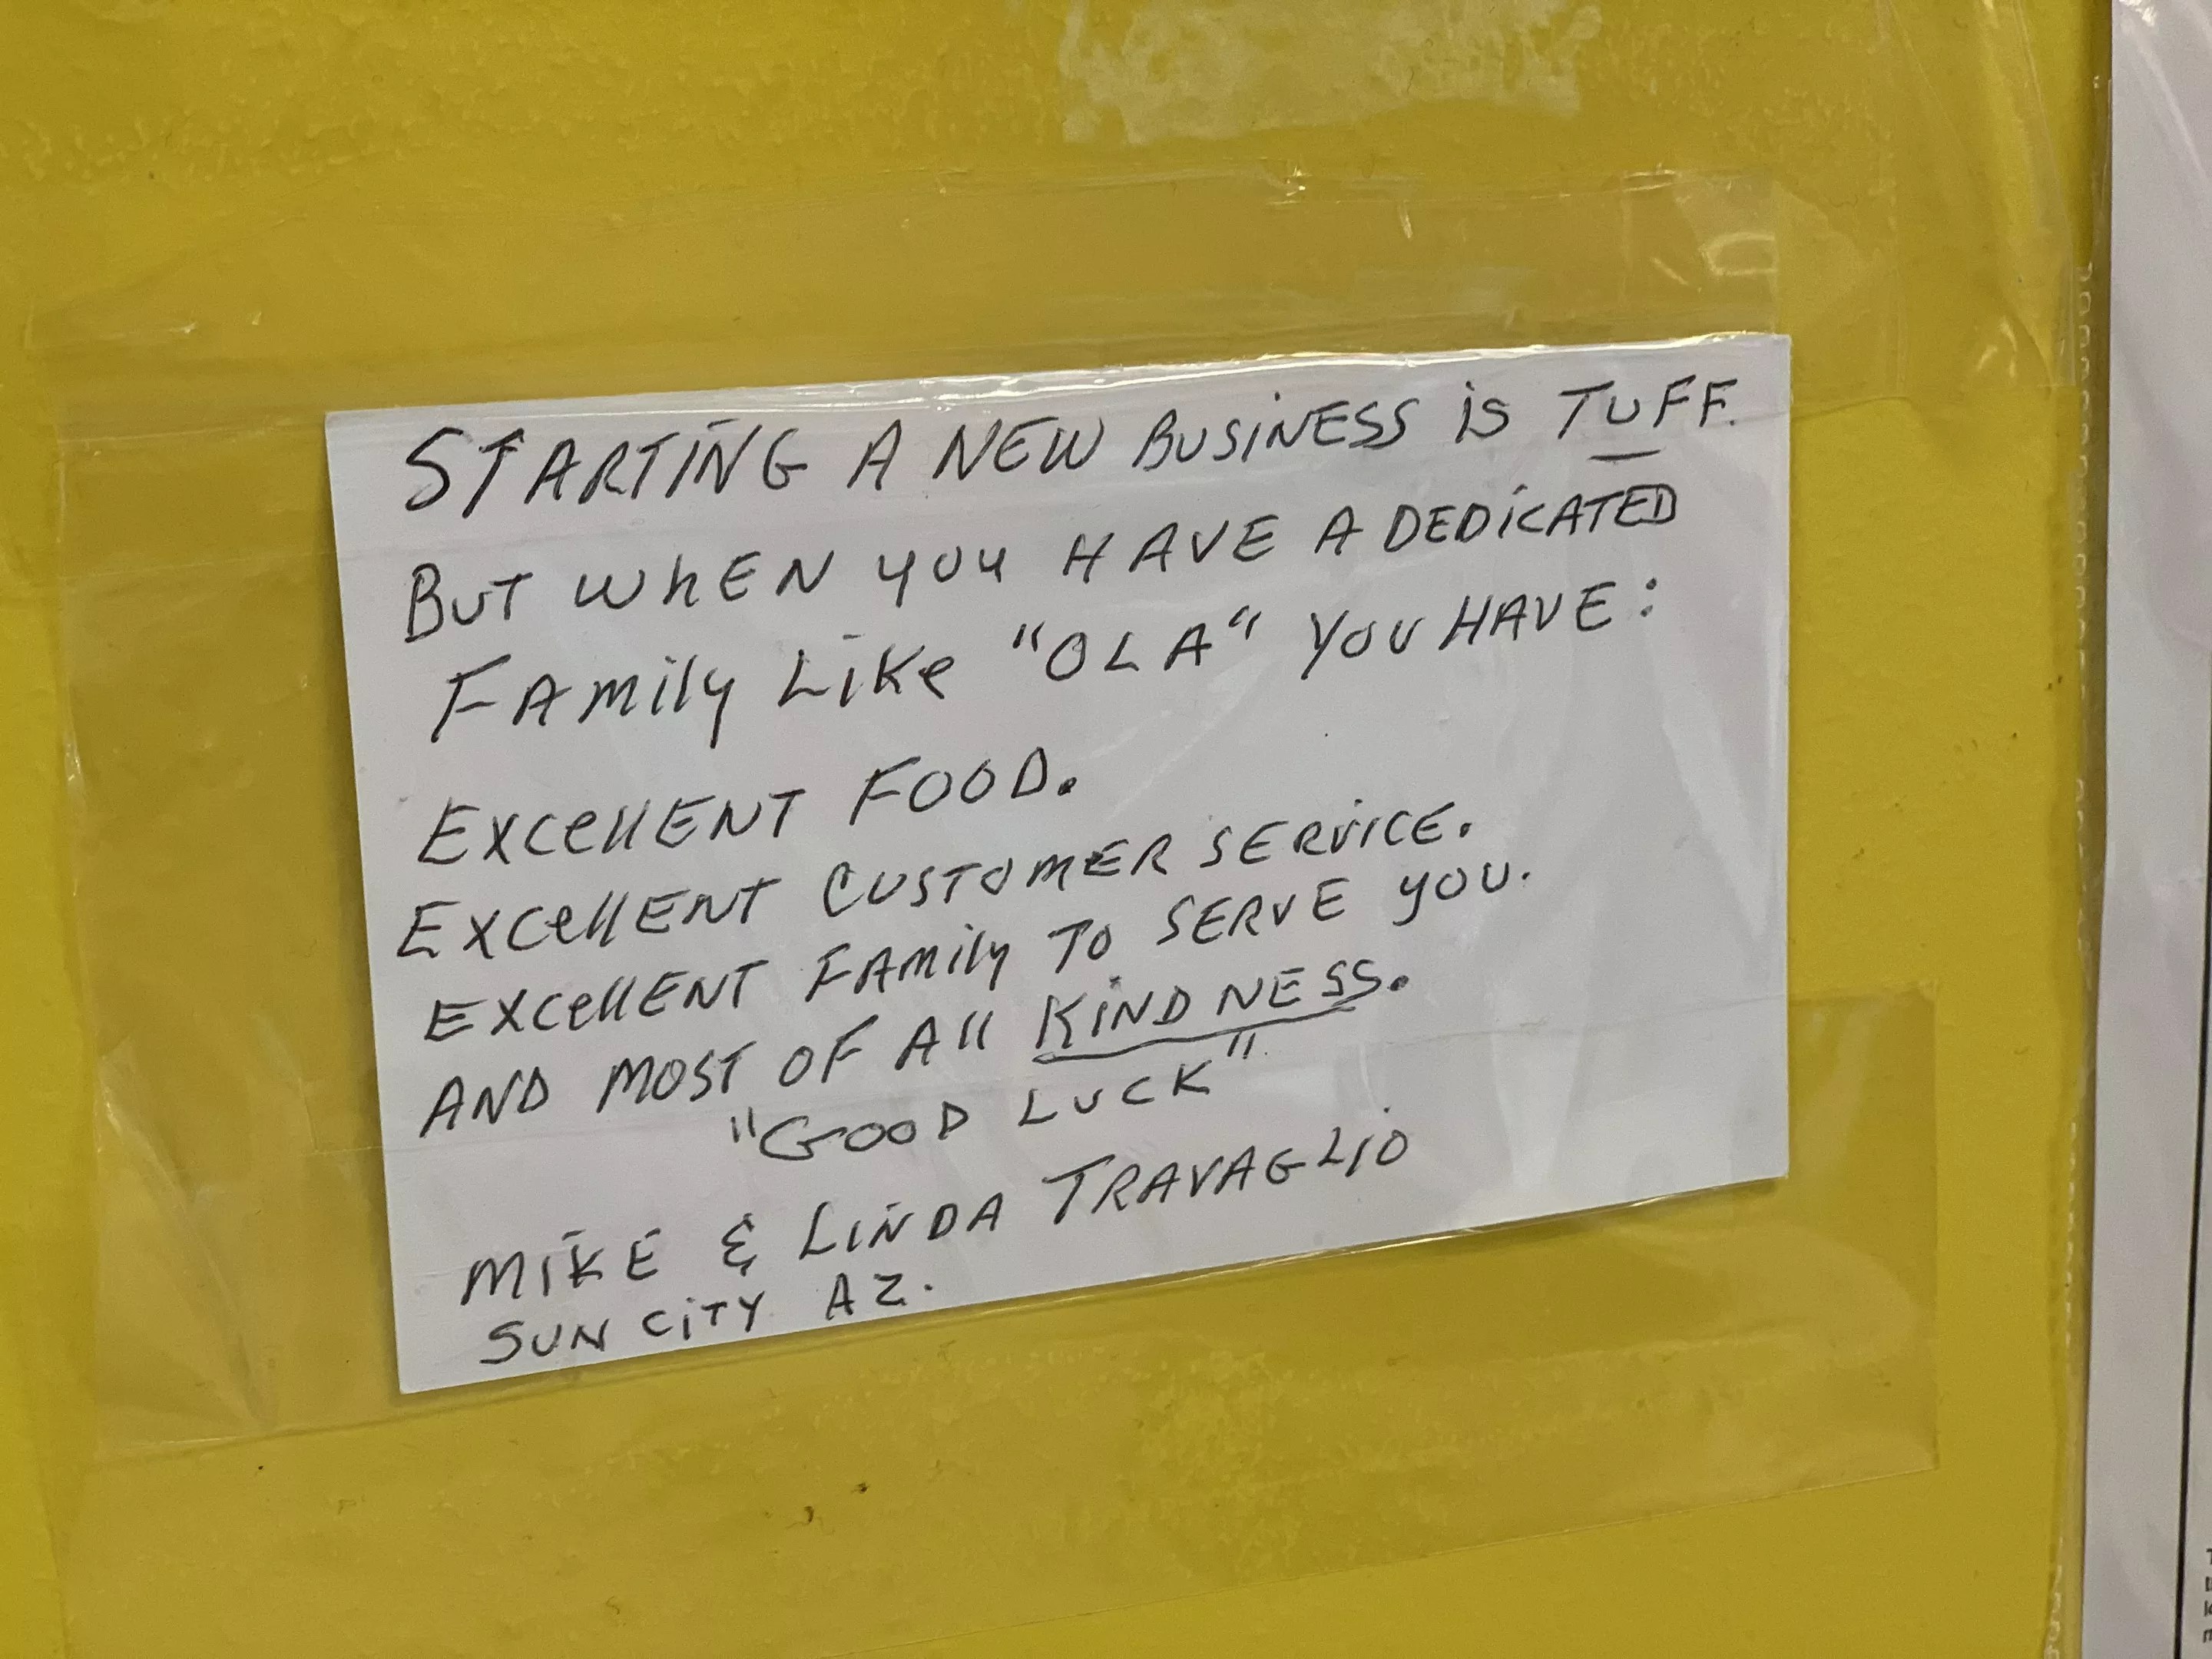 STARTING A NEW BUSINESS iS TUFF.
BUT WhEN YOU HAVE A DEDiCATED
FAmily LiKe "OLA" YOU HAVE:
EXCellENT FOOD.
EXCellENT CUSTOMER SERViCE.
EXCellENT FAmily TO SERVE YOU.
AND MOST OF All KiNDNESS.
"GOOD LUCK"
MiKE & LiNDA TRAVAGLiO
SUN CiTY AZ.